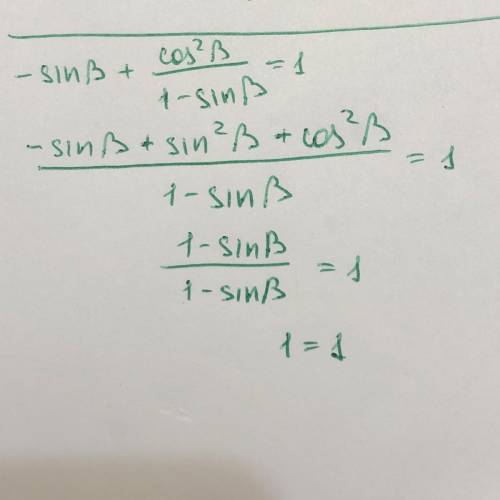 -sinβ + cos²β / 1-sinβ = 1
-sinβ + sin²β + cos²β / 1-sinβ = 1
1-sinβ / 1-sinβ = 1
1 = 1